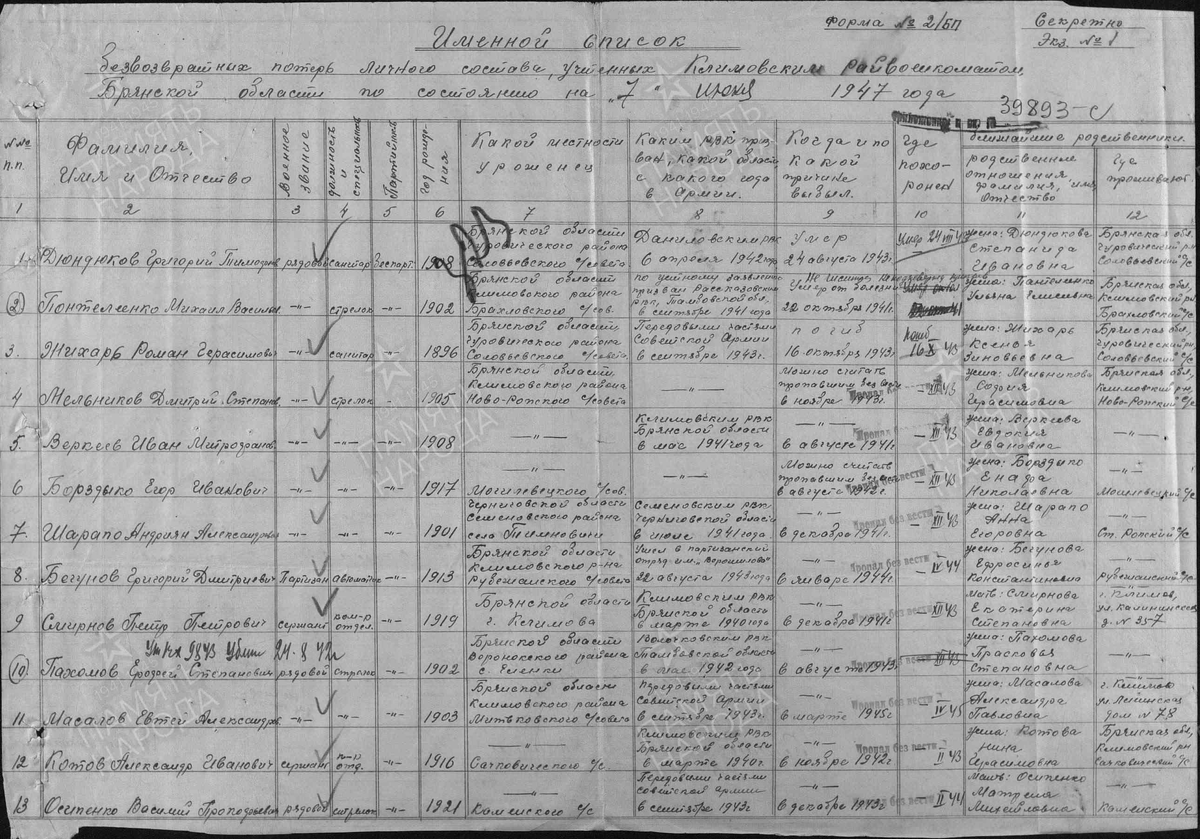 Форма № 2/БП
Секретно
Экз. № 1
Именной список
безвозвратных потерь личного состава, учтенных Климовским райвоенкоматом,
Брянской области по состоянию на "7" июня 1947 года
39893-с
№№ п.п.
Фамилия, Имя и Отчество
Военное звание
должность и специальность
Партийность
год рождения
Какой местности уроженец
Каким РВК призван, какой области с какого года в Армии.
Когда и по какой причине выбыл.
Где похоронен
ближайшие родственники.
родственные отношения, фамилия, имя, отчество
Где проживают
1 2 3 4 5 6 7 8 9 10 11 12
1. Дюндюков Григорий рядовой санитар беспарт. 1908 Брянской области Чуровического района Соловьевского с/совета Даниловским РВК в апреля 1942 года Умер 24 августа 1943г. жена: Дюндюкова Степанида Ивановна Брянская обл. Чуровический р Соловьевский с/с
2 Понтеленко Михаил -"- стрелок -"- 1902 Брянской области Климовского района Брахловского с/сов. призван Рассказовский РВК, Тамбовской обл. в сентябре 1941 года Умер от болезни 22 октября 1941г. жена: Пантеленко Ульяна Брянская обл, Климовский р Брахловский с/с
3. Жихарь Роман Герасимович -"- санитар -"- 1896 Брянской области Чуровического района Соловьевского с/совета Передовыми частями Советской Армии в сентябре 1943г. погиб 16 октября 1943г. Погиб 16 X 43 жена: Жихарь Ксенья Зиновьевна Брянская обл, Чуровический р Соловьевский с/с
4 Мельников Дмитрий Степанов -"- стрелок -"- 1905 Брянской области Климовского района Ново-Ропского с/совета -"- Можно считать пропавшим без вести в ноябре 1943г. Пропал без вести XII 43 жена: Мельникова София Герасимовна Брянская обл, Климовский р Ново-Ропский с/с
5. Веркеев Иван -"- -"- -"- 1908 -"- Климовским РВК Брянской области в мае 1941 года в августе 1941г. Пропал без вести XII 43 жена: Веркеева Евдокия Ивановна -"-
6 Борздыко Егор Иванович -"- -"- -"- 1917 -"- Могилевецкого с/сов. -"- Можно считать пропавшим без вести в августе 1942г. Пропал без вести XII 43 жена: Борздыко Николаевна -"- Могилевецкий с/с
7. Шарапо Андриян Александров -"- -"- -"- 1901 Черниговской области Семеновского района села Тимновичи Семеновским РВК Черниговской области в июле 1941 года в декабре 1941г. Пропал без вести XII 43 жена: Шарапо Анна Егоровна -"- Ст. Ропский с/с
8. Бегунов Григорий Дмитриевич Партизан автоматчик -"- 1913 Брянской области Климовского р-на Рубежанского с/совета Ушел в партизанский отряд им. Ворошилова 22 августа 1943 года в январе 1944г. Пропал без вести IV 44 жена: Бегунова Ефросинья Константиновна -"- Рубежанский с/с
9 Смирнов Петр Петрович сержант ком-р отдел. -"- 1919 Брянской области г. Климова Климовским РВК Брянской области в марте 1940 года в декабре 1941г. Пропал без вести XII 43 мать: Смирнова Екатерина Степановна г. Климов, ул. Калининская д. № 357
9843 Убит 24.8.42г
10. Пахомов Степанович рядовой стрелок -"- 1902 Брянской области Воронокского района Тамбовской области в мае 1942 года в августе 1943г. Пропал без вести жена: Пахомова Прасковья Степановна -"-
11 Масалов Евтей Александров -"- -"- -"- 1903 Брянской области Климовского района Митьковского с/совета Передовыми частями Советской Армии в сентябре 1943г. в марте 1945г. Пропал без вести IV 45 жена: Масалова Александра Павловна г. Климов ул. Ленинская дом № 78
12 Котов Александр Иванович сержант к-р отд. -"- 1910 -"- Сачковического с/с Климовским РВК Брянской области в марте 1940г. в ноябре 1942г Пропал без вести II 43 жена: Котова Нина Герасимовна Брянская обл, Климовский рн Сачковический с/с
13 Осипенко Василий Прокофьевич рядовой стрелок -"- 1921 -"- Каменского с/с Передовыми частями советской армии в сентябре 1943г. в декабре 1943г Пропал без вести II 44 мать: Осипенко Матрена Михайловна -"- Каменский с/с
ПАМЯТЬ НАРОДА